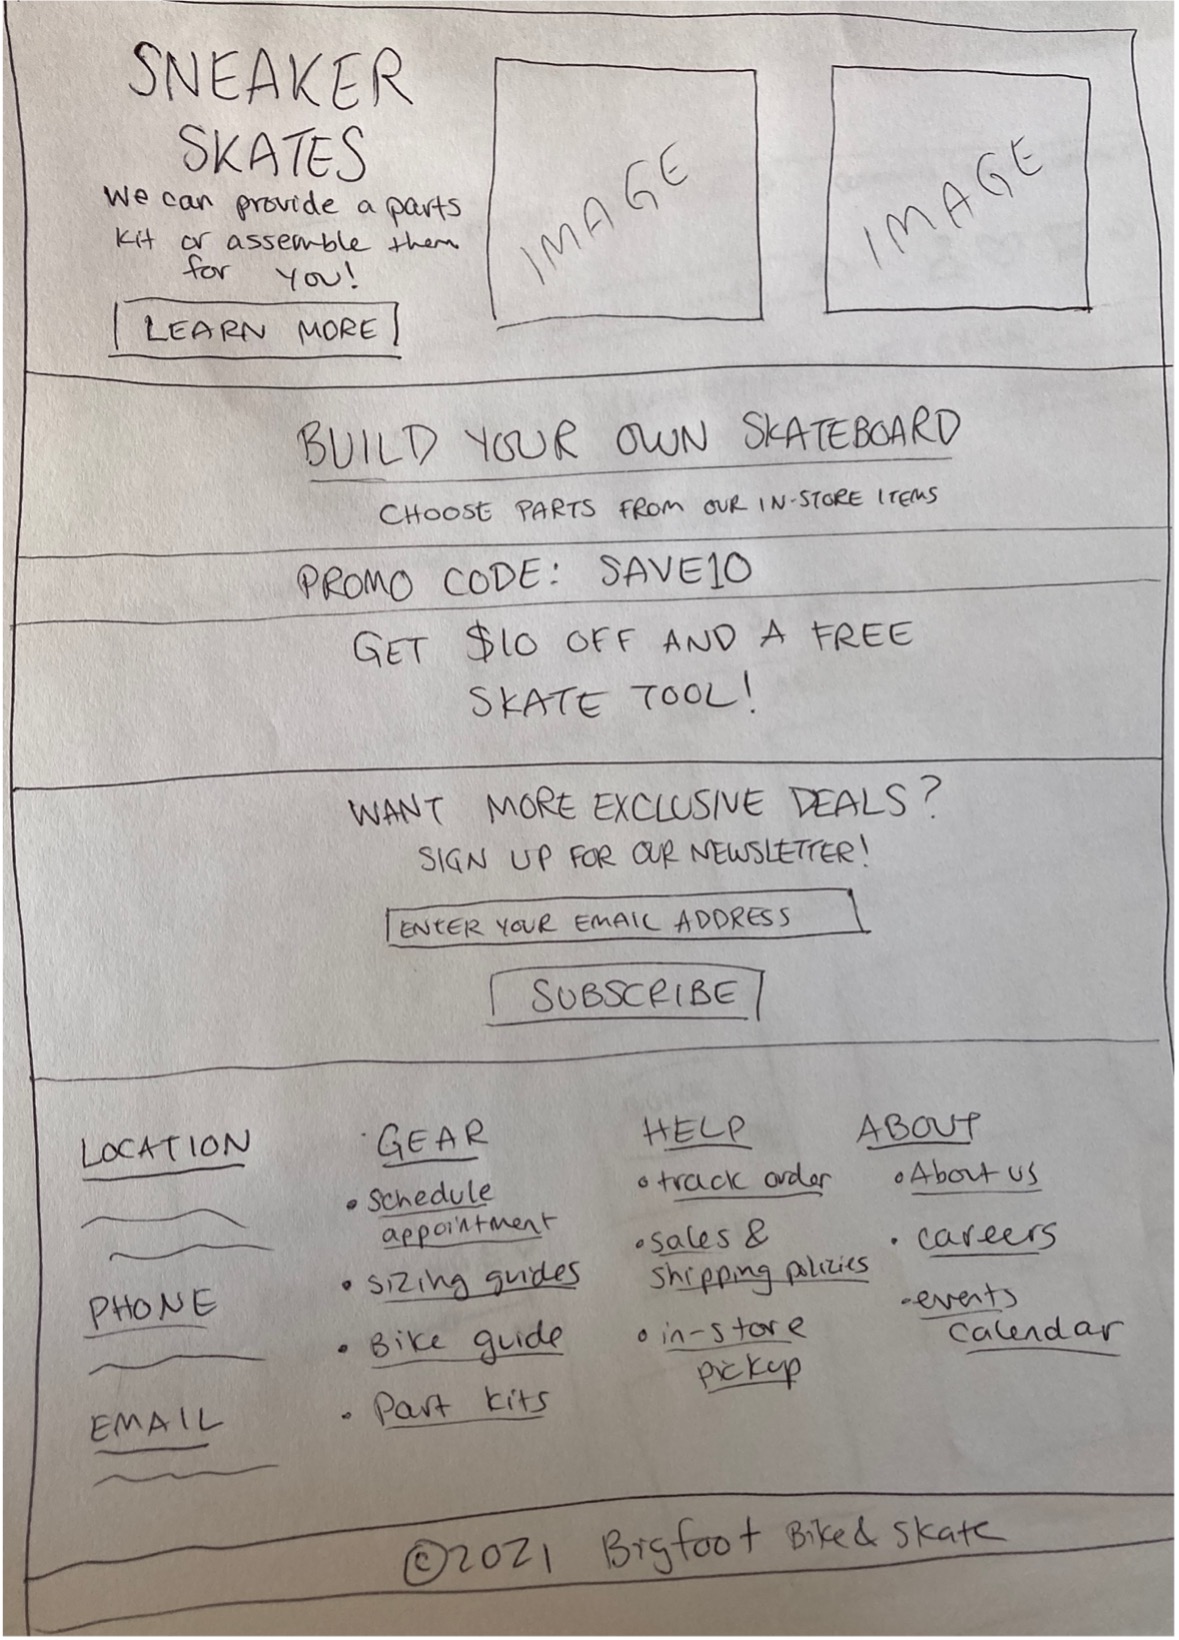 SNEAKER
SKATES
We can provide a parts
kit or assemble them
for you!
LEARN MORE
IMAGE
IMAGE
BUILD YOUR OWN SKATEBOARD
CHOOSE PARTS FROM OUR IN-STORE ITEMS
PROMO CODE: SAVE10
GET $10 OFF AND A FREE
SKATE TOOL!
WANT MORE EXCLUSIVE DEALS?
SIGN UP FOR OUR NEWSLETTER!
ENTER YOUR EMAIL ADDRESS
SUBSCRIBE
LOCATION
PHONE
EMAIL
GEAR
• Schedule
appointment
• sizing guides
• Bike guide
• Part kits
HELP
• track order
• sales &
shipping policies
• in-store
pickup
ABOUT
• About us
• careers
• events
calendar
©2021 Bigfoot Bike & Skate